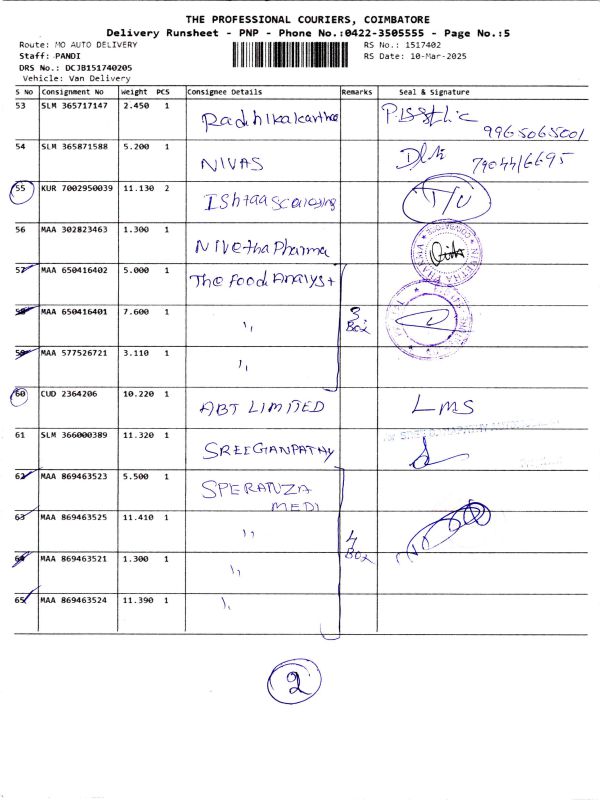 THE PROFESSIONAL COURIERS, COIMBATORE
Delivery Runsheet - PNP - Phone No.:0422-3505555 - Page No.:5
Route: MO AUTO DELIVERY RS No.: 1517402
Staff: PANDI RS Date: 10-Mar-2025
DRS No.: DCJB151740205
Vehicle: Van Delivery
S No Consignment No Weight PCS Consignee Details Remarks Seal & Signature
53 SLM 365717147 2.450 1
9965065001
54 SLM 365871588 5.200 1 NIVAS
55 KUR 7002950039 11.130 2
56 MAA 302823463 1.300 1 Nivetha Pharma
57 MAA 650416402 5.000 1 The Food Analyst
58 MAA 650416401 7.600 1 ,, 3 Box
59 MAA 577526721 3.110 1 ,,
60 CUD 2364206 10.220 1 ABT LIMITED LMS
61 SLM 366000389 11.320 1 SREEGANPATHY
62 MAA 869463523 5.500 1 SPERANZA MEDI
63 MAA 869463525 11.410 1 ,, 4 Box
64 MAA 869463521 1.300 1 ,,
65 MAA 869463524 11.390 1 ,,
2